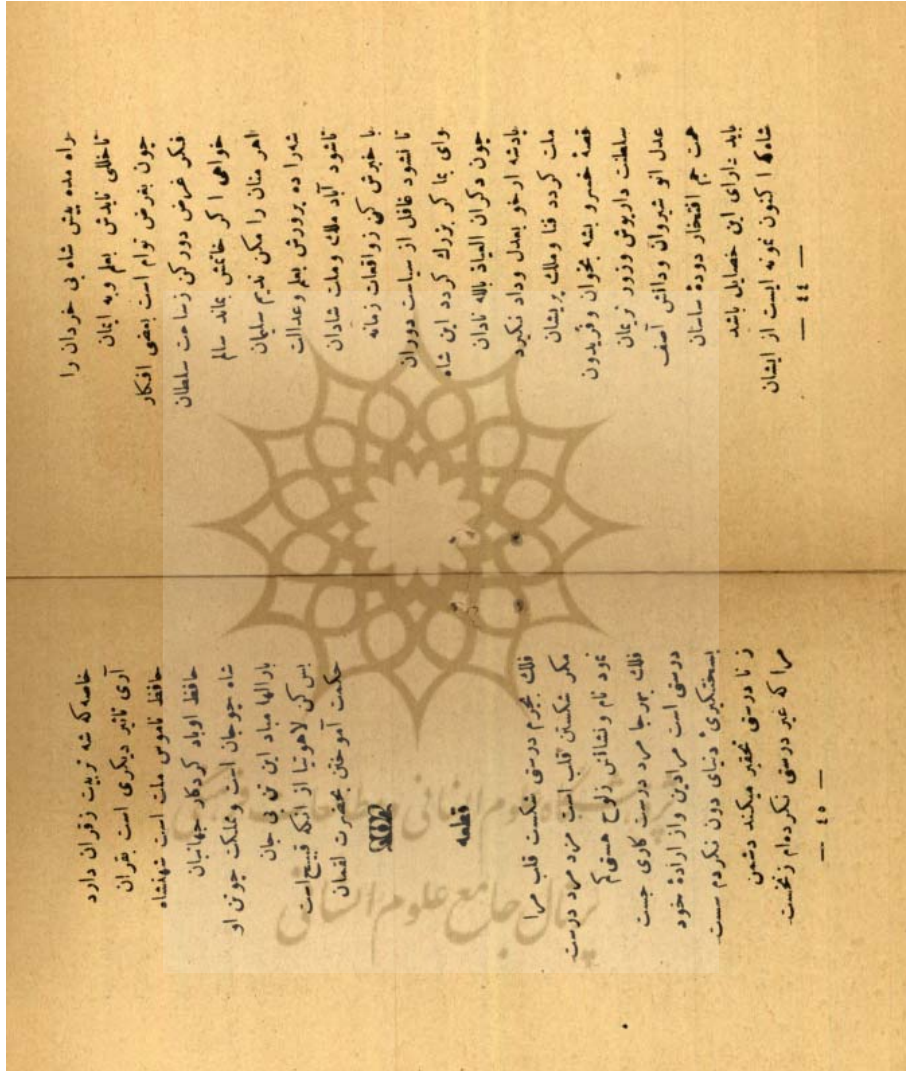 راه مده پیش شاه بی خردان را
تاخللی نایدش بعلم وبه ایمان
چون بغرض توام است بعضی افکار
فکر غرض دورکن زساحت سلطان
خواهی اکر خاتمش بماند سالم
اهر منان را مکن ندیم سلیمان
شه را ده پرورش بعلم وعدالت
تاشود آباد ملك وملت شادان
با خبرش کن زواقعات زمانه
تا نشود غافل از سیاست دوران
وای بما کر بزرك کردد این شاه
چون دکران العیاذ بالله نادان
پادشه ارخو بعدل وداد نکیرد
ملت کردد فنا وملك پریشان
قصهٔ خسرو بشه بخوان وفریدون
سلطنت داریوش وزور نریمان
عدل انو شیروان ودانش آصف
همت جم افتخار دودهٔ ساسان
باید دارای این خصایل باشد
اکنون نمونه ایست از ایشان
— ٤٤ —
خاصه که شه تربیت زقران دارد
آری تاثیر دیکری است بقران
حافظ ناموس ملت است شهنشاه
حافظ اوباد کردکار جهانبان
شاه چوجان است ومملکت چوتن او
بارالها مباد این تن بی جان
بس کن لاهوتیا از انکه قبیح است
حکمت آموختن بحضرت لقمان
قطعه
فلك بجرم درستی شکست قلب مرا
مکر شکستن قلب است مزد مرد درست
نمود نام ونشانش زلوح هستی کم
فلك بهرجا مرد درست کاری جست
درستی است مرادین واز ارادهٔ خود
بسختکیریٔ دنیای دون نکردم سست
ز نا درستی تحقیر میکند دشمن
مرا که غیر درستی نکرده‌ام زنخست
— ٤٥ —
پژوهشگاه علوم انسانی و مطالعات فرهنگی
پرتال جامع علوم انسانی